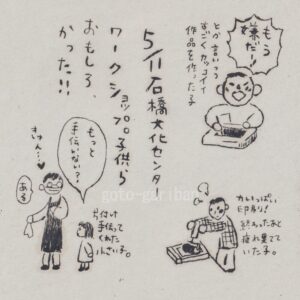 もう
嫌だー!
とか言いつつ
すごくカッコイイ
作品を作った子
5/11 石橋文化センター
ワークショップの子供ら
おもしろ
かった!!
もっと
手伝いない?
ある
片付け
手伝って
くれた
小さい子。
力いっぱい
印刷し
終わったあと
疲れ果てて
いた子。
goto-gariban